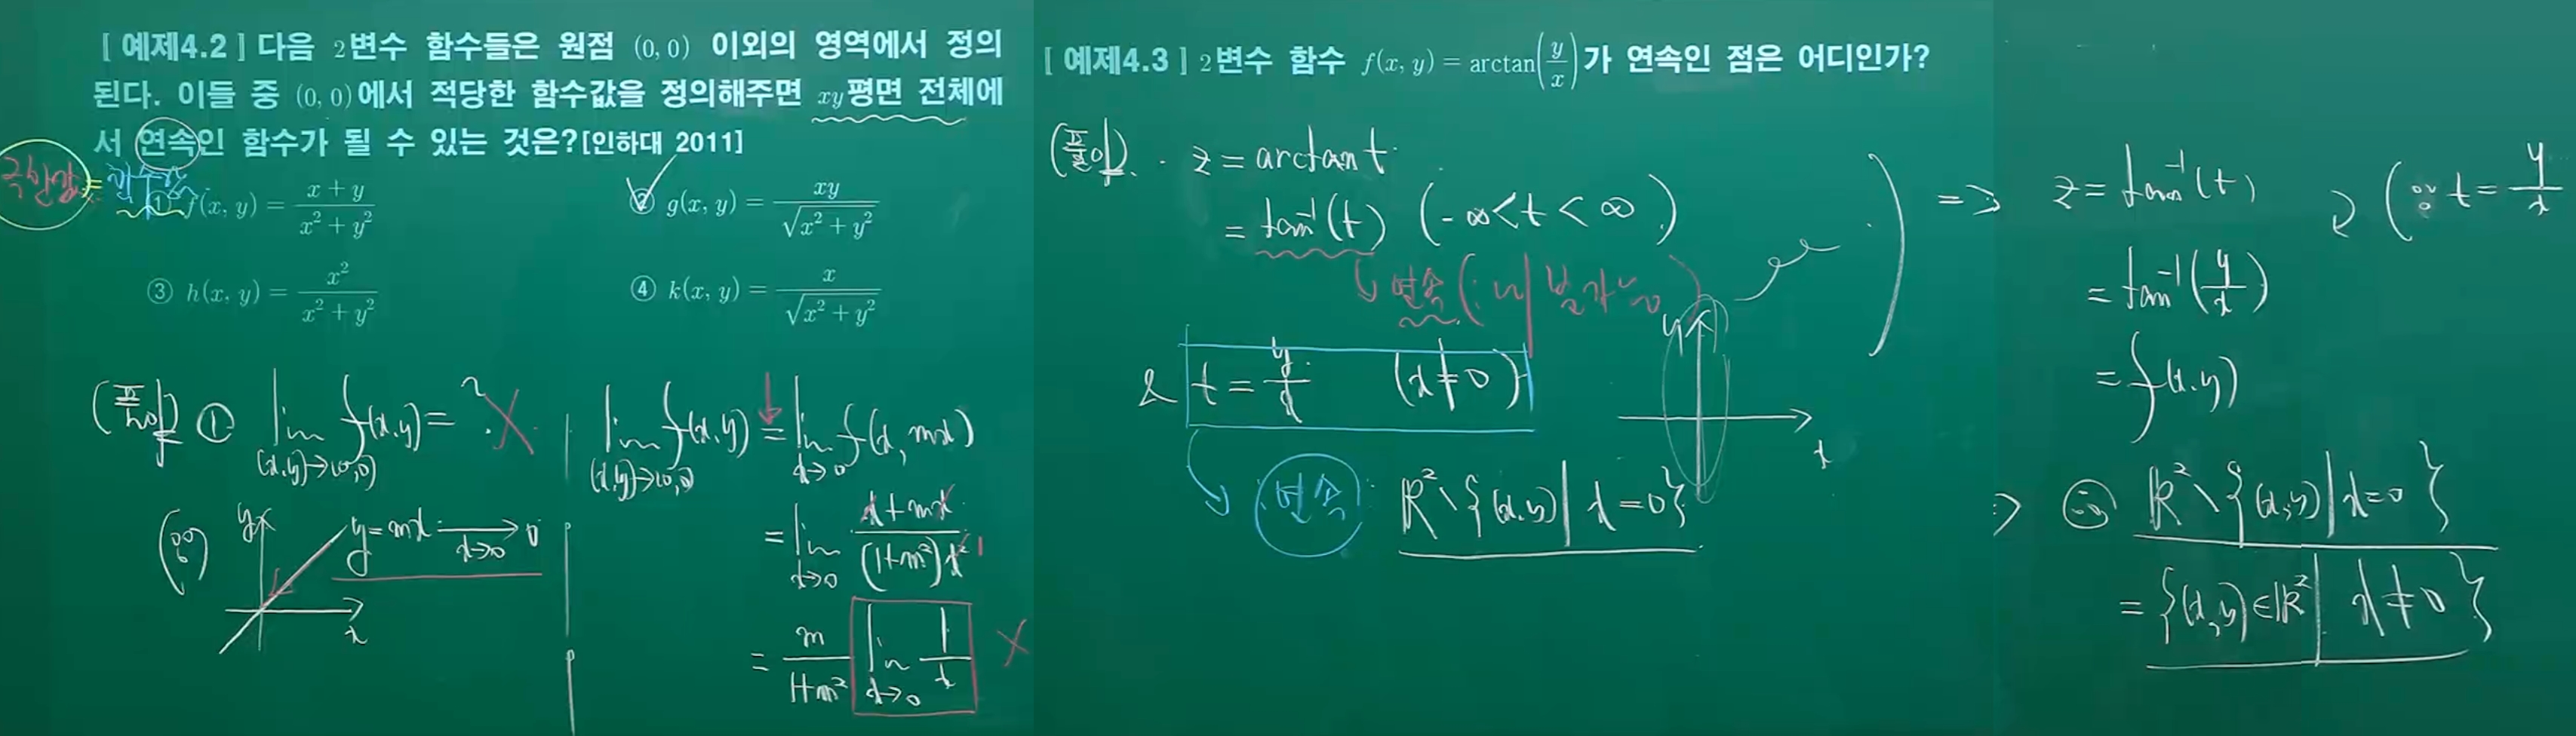 [ 예제4.2 ] 다음 2변수 함수들은 원점 (0, 0) 이외의 영역에서 정의
된다. 이들 중 (0, 0)에서 적당한 함수값을 정의해주면 xy평면 전체에
서 연속인 함수가 될 수 있는 것은?[인하대 2011]
극한값 =
① f(x, y) = \frac{x + y}{x^2 + y^2}
② g(x, y) = \frac{xy}{\sqrt{x^2 + y^2}}
③ h(x, y) = \frac{x^2}{x^2 + y^2}
④ k(x, y) = \frac{x}{\sqrt{x^2 + y^2}}
(풀이) ① \lim_{(x,y)→(0,0)} f(x,y) = ? X
(∵) y x y = mx \xrightarrow{x→0} 0
\lim_{(x,y)→(0,0)} f(x,y) = \lim_{x→0} f(x, mx)
= \lim_{x→0} \frac{x + mx}{(1+m^2)x^2} 1
= \frac{m}{1+m^2} \lim_{x→0} \frac{1}{x} X
[ 예제4.3 ] 2변수 함수 f(x, y) = arctan(\frac{y}{x})가 연속인 점은 어디인가?
(풀이). · z = arctan t
= tan^{-1}(t) (-∞ < t < ∞)
연속 (∵ 미분가능)
& t = \frac{y}{x} (x ≠ 0)
y x
연속 R^2 \ {(x,y) | x = 0}
=> z = tan^{-1}(t) (∵ t = \frac{y}{x}
= tan^{-1}(\frac{y}{x})
= f(x,y)
=> ∴ R^2 \ {(x,y) | x = 0}
= {(x,y) ∈ R^2 | x ≠ 0}